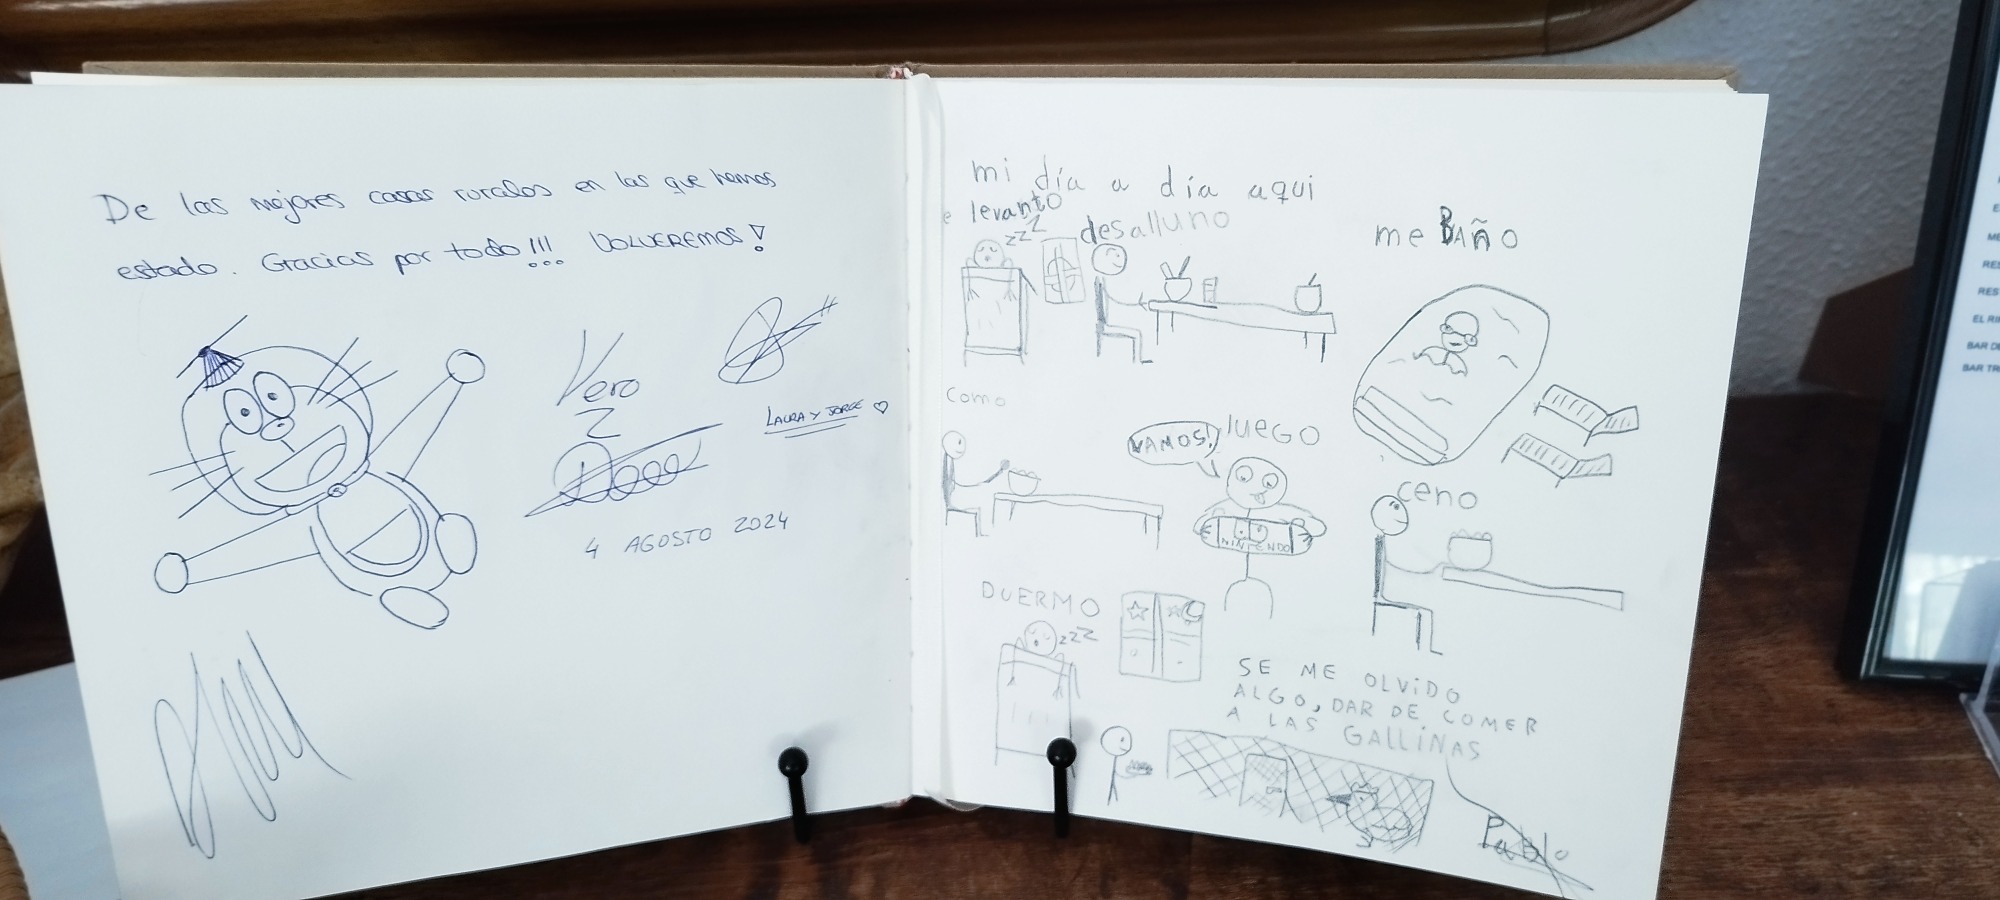 De las mejores casas rurales en las que hemos
estado. Gracias por todo!!! VOLVEREMOS!
Vero
LAURA Y JORGE ♡
4 AGOSTO 2024
mi día a día aqui
e levanto
zzz
desalluno
me BAÑO
como
VAMOS!
JUEGO
NINTENDO
ceno
DUERMO
zzz
SE ME OLVIDO
ALGO, DAR DE COMER
A LAS GALLINAS
Pablo